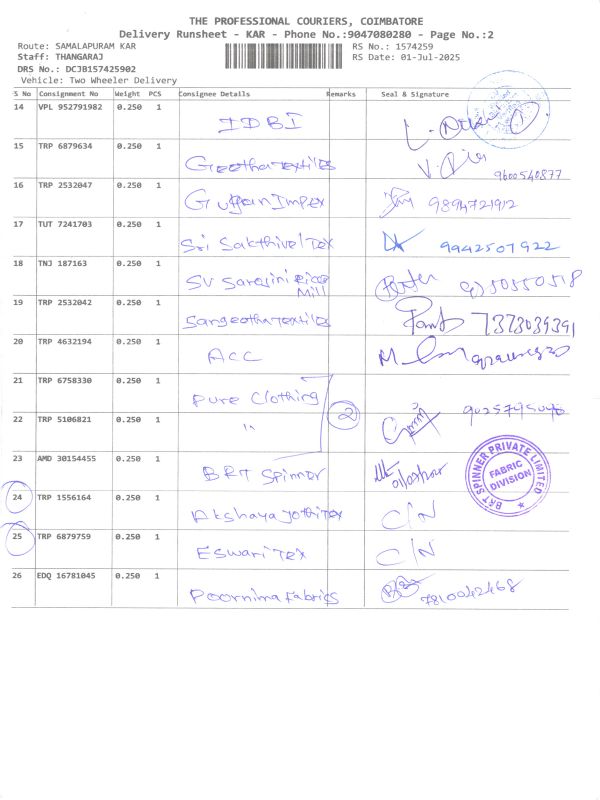 THE PROFESSIONAL COURIERS, COIMBATORE
Delivery Runsheet - KAR - Phone No.:9047080280 - Page No.:2
Route: SAMALAPURAM KAR RS No.: 1574259
Staff: THANGARAJ RS Date: 01-Jul-2025
DRS No.: DCJB157425902
Vehicle: Two Wheeler Delivery
S No Consignment No Weight PCS Consignee Details Remarks Seal & Signature
14 VPL 952791982 0.250 1 IDBI
15 TRP 6879634 0.250 1 Geetha Textiles 9600540877
16 TRP 2532047 0.250 1 Impex 9894721912
17 TUT 7241703 0.250 1 Sri Sakthivel Tex 9942507922
18 TNJ 187163 0.250 1 SV Sarojini Rice
Mill
19 TRP 2532042 0.250 1 Sangeetha Textiles 7373039391
20 TRP 4632194 0.250 1 ACC
21 TRP 6758330 0.250 1 Pure Clothing
22 TRP 5106821 0.250 1 " 2
23 AMD 30154455 0.250 1 BRT Spinner
BRT SPINNER PRIVATE LIMITED
FABRIC
DIVISION
24 TRP 1556164 0.250 1 Akshaya Jothi Tex C/N
25 TRP 6879759 0.250 1 Eswari Tex C/N
26 EDQ 16781045 0.250 1 Poornima Fabrics 7810042468